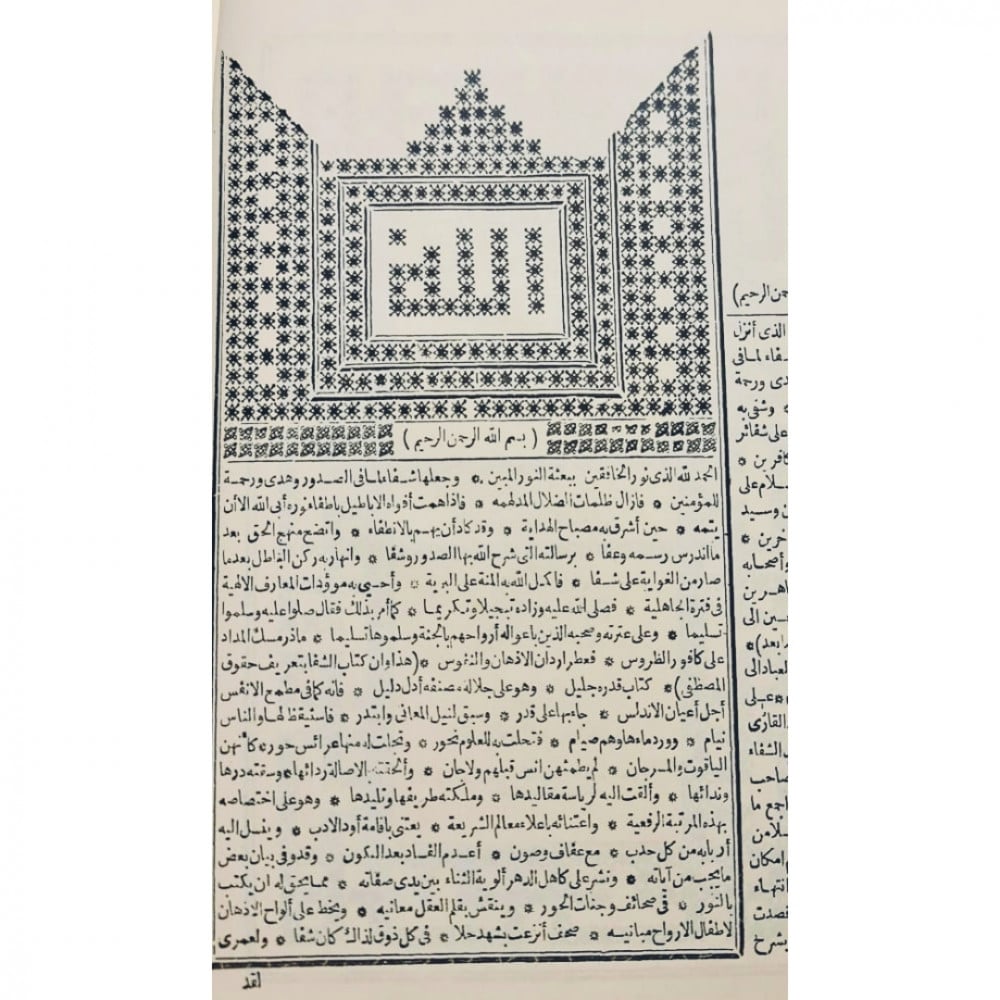 الله
( بسم الله الرحمن الرحيم )
الحمد لله الذى نور الخافقين ببعثة النور المبين * وجعلها شفاء لما فى الصدور وهدى ورحمة
للمؤمنين * فأزال ظلمات الضلال المدلهمه * فاذا همت أفواه الاباطيل باطفاء نوره أبى الله الا أن
يتمه * حين أشرق به مصباح الهداية * وقد كاد أن يهم بالانطفاء * واتضح منهج الحق بعد
ما اندرس رسمه وعفا * برسالته التى شرح الله بها الصدور وشفا * وانهار به ركن الباطل بعد ما
صار من الغواية على شفا * فأكمل الله به المنة على البرية * وأحيى به موؤدات المعارف الالهية
فى فترة الجاهلية * فصلى الله عليه وزاده تبجيلا وتكريما * كما أمر بذلك فقال صلوا عليه وسلموا
تسليما * وعلى عترته وصحبه الذين باعوا له أرواحهم بالجنة وسلموها تسليما * ما ذر مسك المداد
على كافور الطروس * فعطر اردان الاذهان والنفوس * (هذا وان كتاب الشفا بتعريف حقوق
المصطفى) * كتاب قدره جليل * وهو على جلالة مصنفه أدل دليل * فانه كما فى مطمح الانفس
أجل أعيان الاندلس * جاء بها على قدر * وسبق لنيل المعانى وابتدر * فاستيقظ لها والناس
نيام * وورد ماءها وهم صيام * فتحلت به للعلوم نحور * وتجلت له منها عرائس حور * كأنهن
الياقوت والمرجان * لم يطمثهن انس قبلهم ولا جان * وألحفته الاصالة ردائها * وسقته درها
وندائها * وألقت اليه الرياسة مقاليدها * وملكته طريفها وتليدها * وهو على اختصاصه
بهذه المرتبة الرفعية * واعتنائه باعلاء معالم الشريعة * يعتنى باقامة أود الادب * وينسل اليه
أربابه من كل حدب * مع عفاف وصون * أعدم الفساد بعد الكون * وقد وفى بيان بعض
ما يجب من آياته * ونشر على كاهل الدهر ألوية الثناء بين يدى صفاته * مما يحق له ان يكتب
بالنور * فى صحائف وجنات الحور * وينقش بقلم العقل معانيه * ويخط على ألواح الاذهان
لاطفال الارواح مبانيه * صحف أنزعت بشهد حلا * فى كل ذوق لذاك كان شفا * ولعمرى
لقد
الرحيم)
الذى أنزل
ورحمة
* وشفى به
على
على
وسيد
وأصحابه
الى
بعد)*
* على
القارى
الشفاء
صاحب
ما
امكان
انتهاء